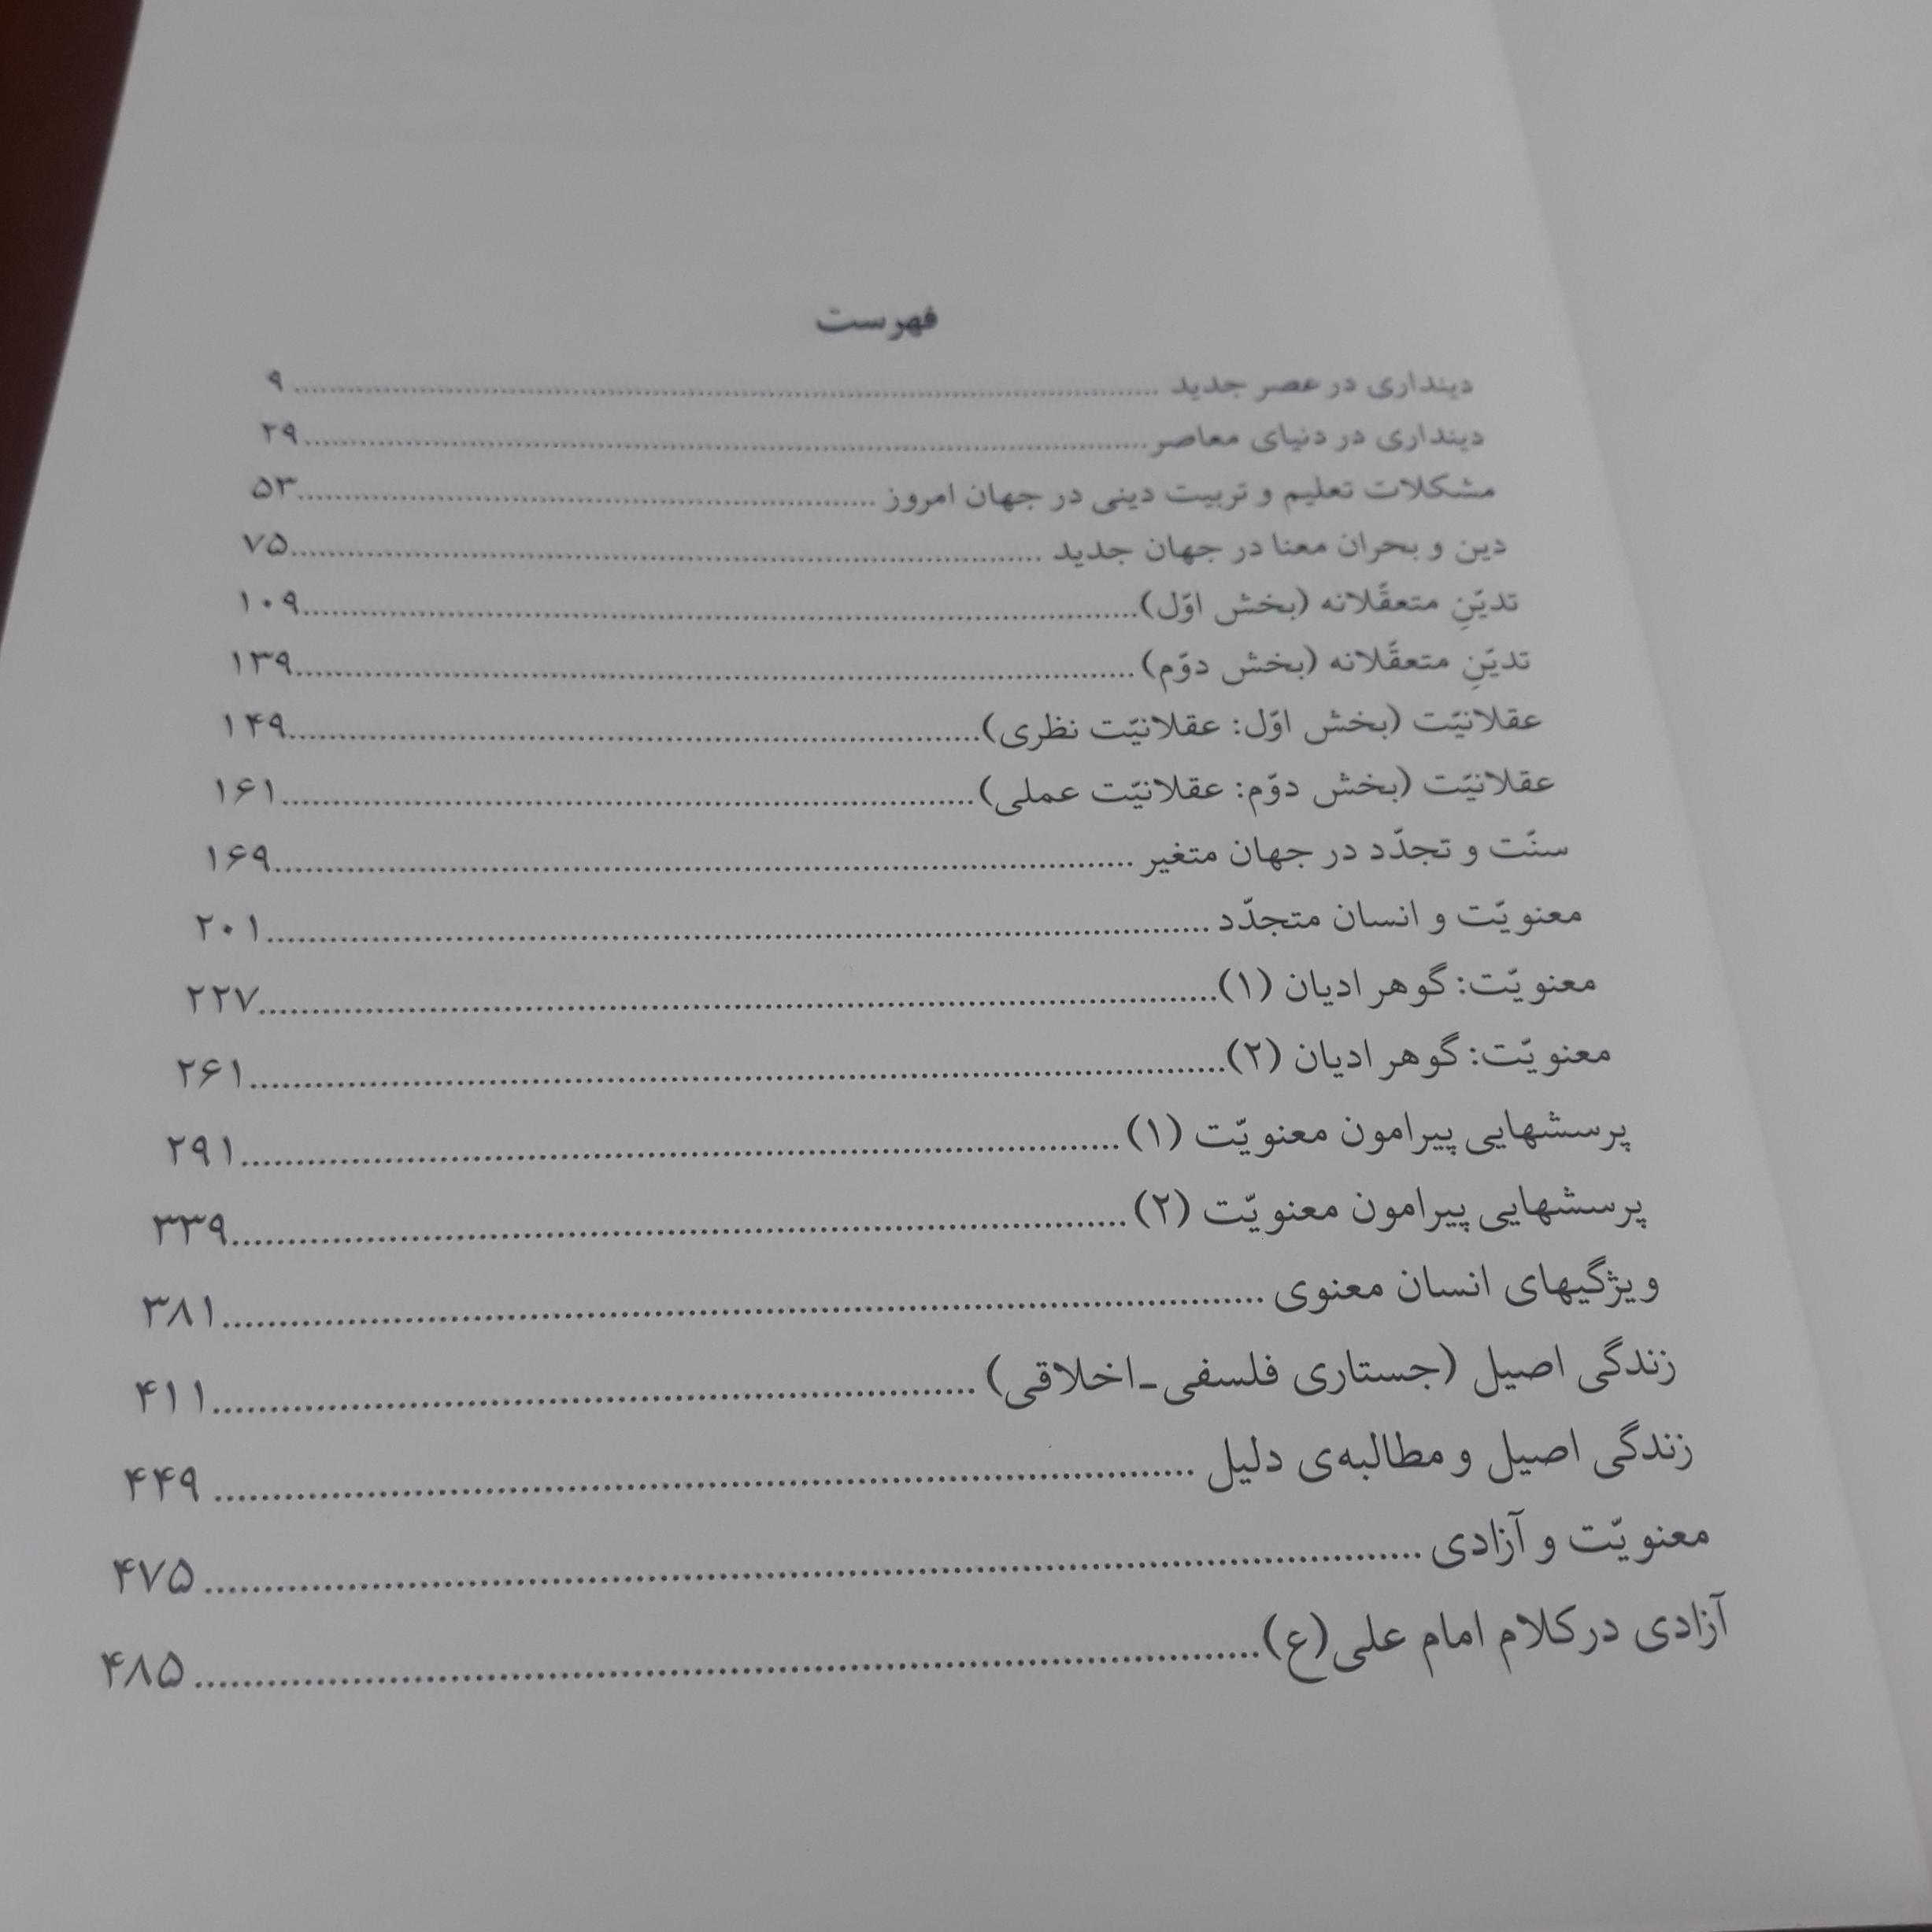 فهرست
دینداری در عصر جدید ........ ۹
دینداری در دنیای معاصر ........ ۲۹
مشکلات تعلیم و تربیت دینی در جهان امروز ........ ۵۳
دین و بحران معنا در جهان جدید ........ ۷۵
تدیّنِ متعقّلانه (بخش اوّل) ........ ۱۰۹
تدیّنِ متعقّلانه (بخش دوّم) ........ ۱۳۹
عقلانیّت (بخش اوّل: عقلانیّت نظری) ........ ۱۴۹
عقلانیّت (بخش دوّم: عقلانیّت عملی) ........ ۱۶۱
سنّت و تجدّد در جهان متغیر ........ ۱۶۹
معنویّت و انسان متجدّد ........ ۲۰۱
معنویّت: گوهر ادیان (۱) ........ ۲۲۷
معنویّت: گوهر ادیان (۲) ........ ۲۶۱
پرسشهایی پیرامون معنویّت (۱) ........ ۲۹۱
پرسشهایی پیرامون معنویّت (۲) ........ ۳۳۹
ویژگیهای انسان معنوی ........ ۳۸۱
زندگی اصیل (جستاری فلسفی-اخلاقی) ........ ۴۱۱
زندگی اصیل و مطالبه‌ی دلیل ........ ۴۴۹
معنویّت و آزادی ........ ۴۷۵
آزادی در کلام امام علی(ع) ........ ۴۸۵